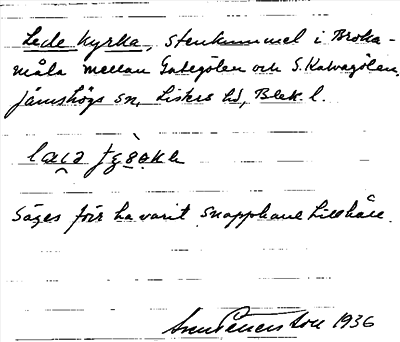 Lede Kyrka, stenkummel i Broka-
måla mellan Gategölen och S. Kalvagölen,
Jämshögs sn, Listers hd, Blek. l.
Säges förr ha varit snapphane tillhåll.
1936